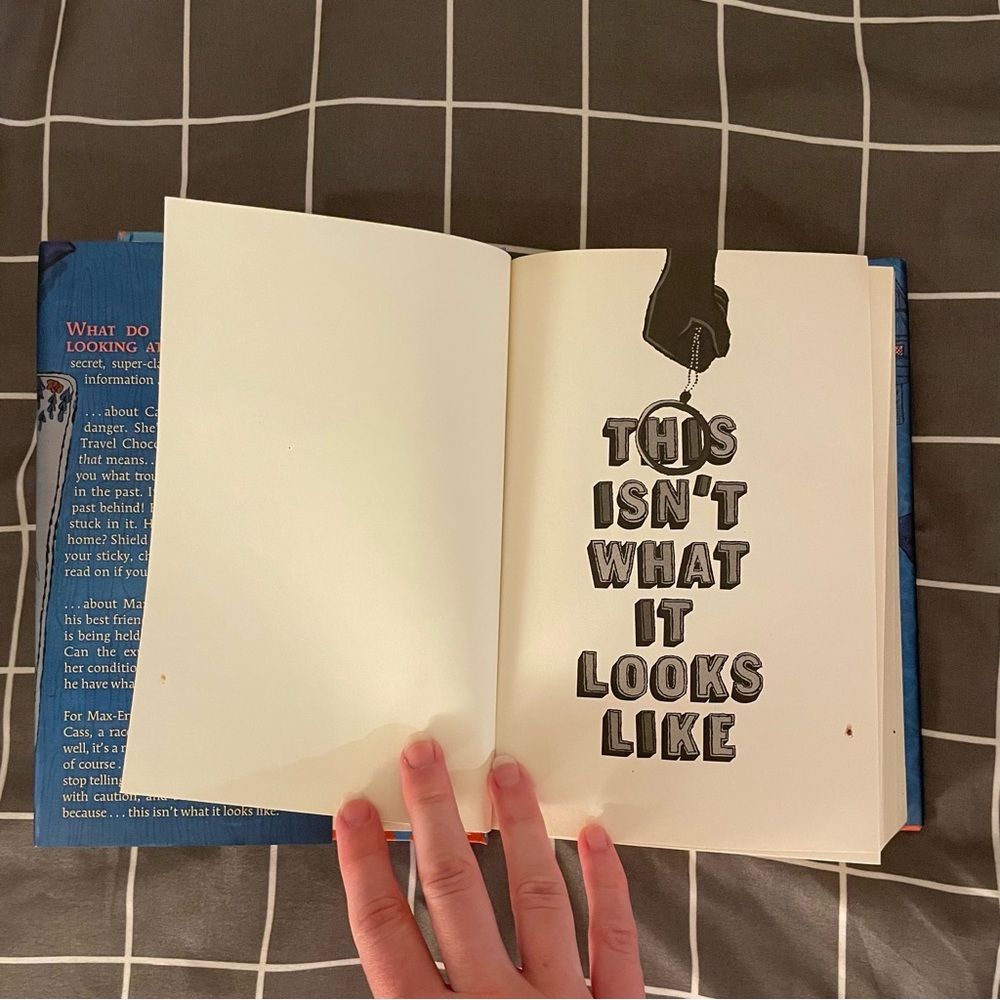 WHAT DO
LOOKING AT
secret, super-cla
information
...about Ca
danger. She'
Travel Choco
that means..
you what trou
in the past. I
past behind!
stuck in it. H
home? Shield
your sticky, ch
read on if you
...about Max
his best frien
is being held
Can the ex
her conditio
he have wha
For Max-Er
Cass, a rac
well, it's a r
of course.
stop telling
with caution, and
because...this isn't what it looks like.
THIS
ISN'T
WHAT
IT
LOOKS
LIKE